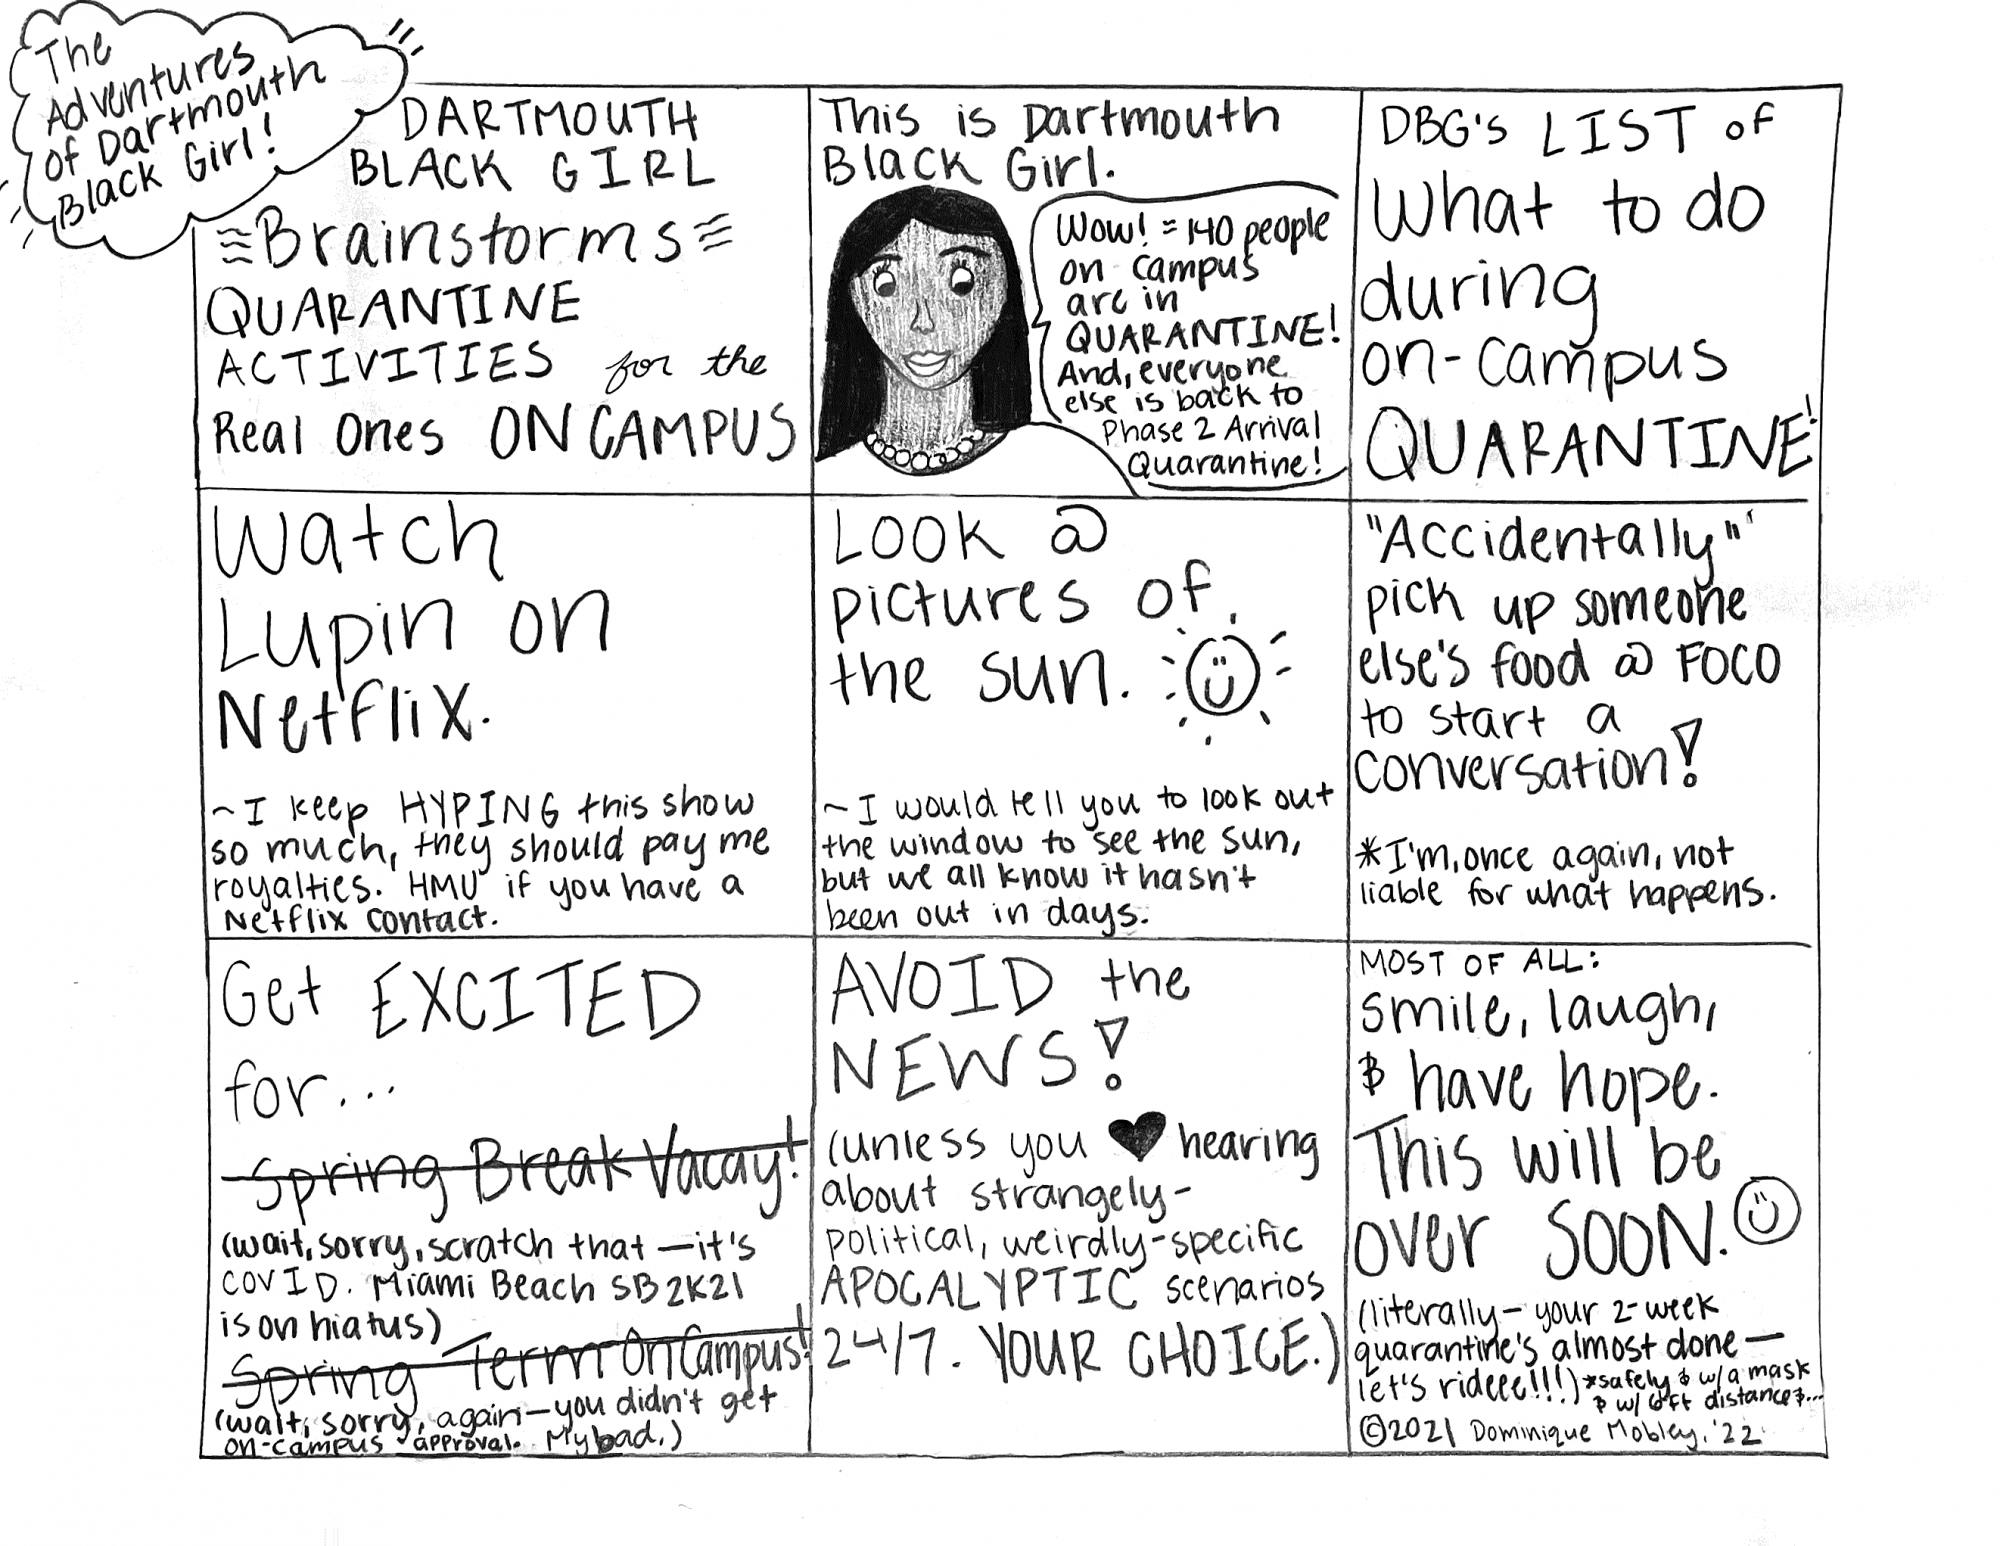 The
Adventures
of Dartmouth
Black Girl!
DARTMOUTH
BLACK GIRL
Brainstorms
QUARANTINE
ACTIVITIES for the
Real Ones ON CAMPUS
This is Dartmouth
Black Girl.
Wow! ≈ 140 people
on campus
are in
QUARANTINE!
And, everyone
else is back to
Phase 2 Arrival
Quarantine!
DBG's LIST of
What to do
during
on-campus
QUARANTINE!
Watch
Lupin on
Netflix.
~I keep HYPING this show
so much, they should pay me
royalties. HMU if you have a
Netflix contact.
LOOK @
pictures of
the sun.
~I would tell you to look out
the window to see the sun,
but we all know it hasn't
been out in days.
"Accidentally"
pick up someone
else's food @ FOCO
to start a
conversation!
*I'm, once again, not
liable for what happens.
Get EXCITED
for...
Spring Break Vacay!
(wait, sorry, scratch that—it's
COVID. Miami Beach SB2K21
is on hiatus)
Spring Term On Campus!
(wait, sorry, again—you didn't get
on-campus approval. My bad.)
AVOID the
NEWS!
(unless you ♥ hearing
about strangely-
political, weirdly-specific
APOCALYPTIC scenarios
24/7. YOUR CHOICE.)
MOST OF ALL:
smile, laugh,
& have hope.
This will be
over SOON.
(literally—your 2-week
quarantine's almost done—
let's rideee!!!) *safely & w/a mask
& w/ 6ft distance &...
©2021 Dominique Mobley, '22